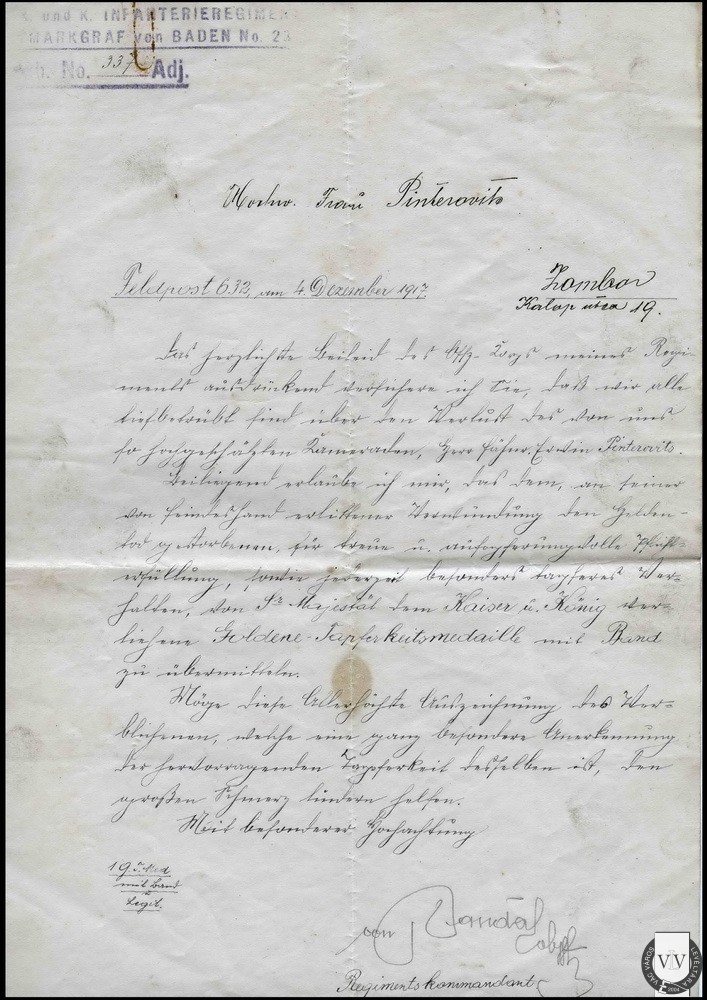 K. und K. INFANTERIEREGIMENT
MARKGRAF von BADEN No. 23
No. 337 Adj.
Hochw. Frau Pinterovits
Feldpost 632, am 4. Dezember 1917.
Zombor
Kalap utca 19.
Das herzlichste Beileid des Offz. Korps meines Regi-
ments ausdrückend versichere ich Sie, daß wir alle
tiefbetrübt sind über den Verlust des von uns
so hochgeschätzten Kameraden, Herr Fähnr. Erwin Pinterovits.
Beiliegend erlaube ich mir, das dem, an seiner
von Feindeshand erlittener Verwundung den Helden-
tod gestorbenen, für treue u. aufopferungsvolle Pflicht-
erfüllung, sowie jederzeit besonders tapferes Ver-
halten, von Sr Majestät dem Kaiser u. König ver-
liehene Goldene-Tapferkeitsmedaille mit Band
zu übermitteln.
Möge diese Allerhöchste Auszeichnung des Ver-
blichenen, welche eine ganz besondere Anerkennung
der hervorragenden Tapferkeit desselben ist, den
großen Schmerz lindern helfen.
Mit besonderer Hochachtung
1 G. T. Med
mit Band
u.
Legit.
von
Obst
Regimentskommandant
VÁC VÁROS LEVÉLTÁRA
VVL